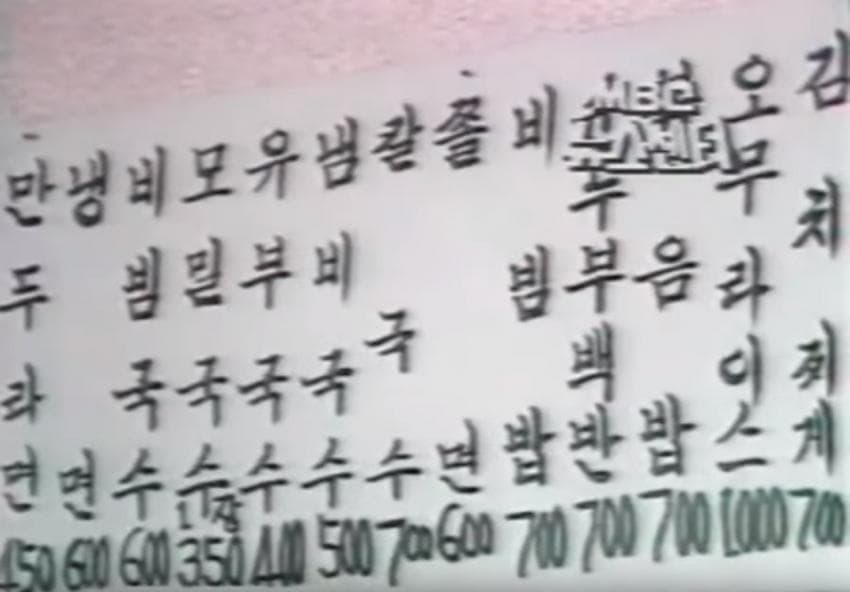 만두라면 450
냉면 600
비빔국수 600
모밀국수 1장 350
유부국수 400
냄비국수 500
칼국수 700
쫄면 600
비빔밥 700
두부백반 700
음밥 700
오무라이스 1000
김치찌게 700